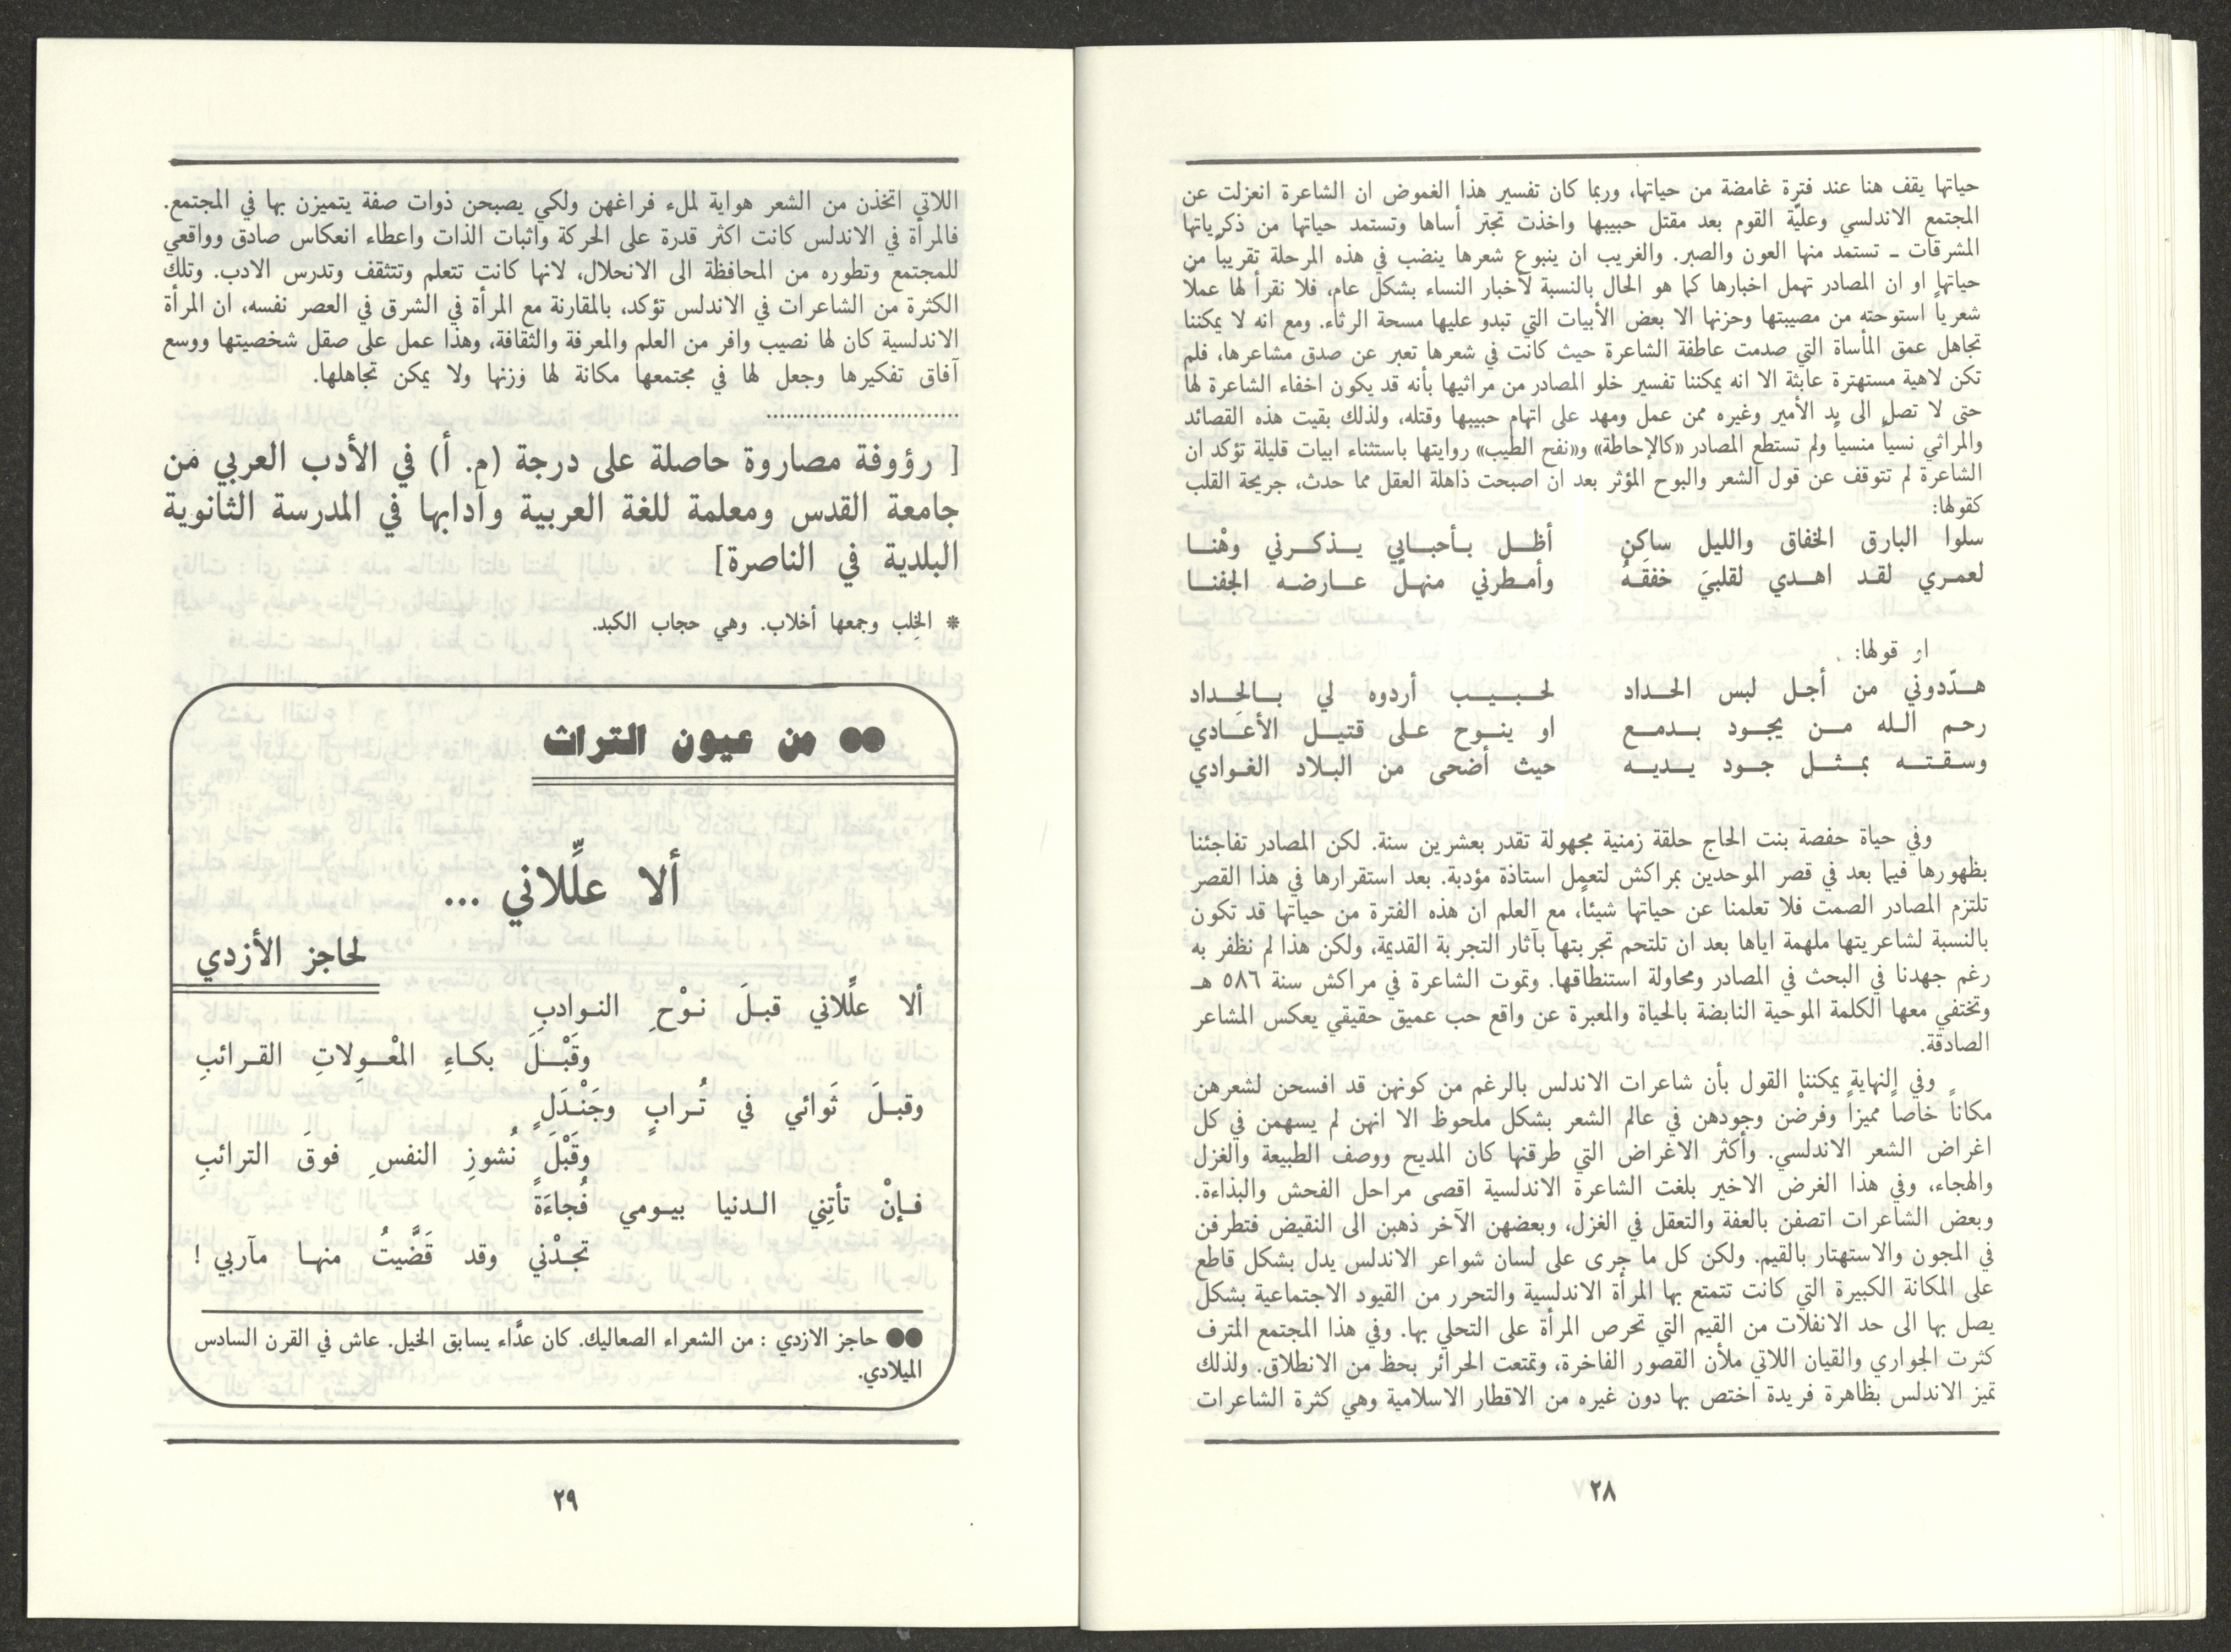 حياتها يقف هنا عند فترة غامضة من حياتها، وربما كان تفسير هذا الغموض ان الشاعرة انعزلت عن
المجتمع الاندلسي وعليّة القوم بعد مقتل حبيبها واخذت تجتر أساها وتستمد حياتها من ذكرياتها
المشرقات ـ تستمد منها العون والصبر. والغريب ان ينبوع شعرها ينضب في هذه المرحلة تقريباً من
حياتها او ان المصادر تهمل اخبارها كما هو الحال بالنسبة لأخبار النساء بشكل عام، فلا نقرأ لها عملاً
شعرياً استوحته من مصيبتها وحزنها الا بعض الأبيات التي تبدو عليها مسحة الرثاء. ومع انه لا يمكننا
تجاهل عمق المأساة التي صدمت عاطفة الشاعرة حيث كانت في شعرها تعبر عن صدق مشاعرها، فلم
تكن لاهية مستهترة عابثة الا انه يمكننا تفسير خلو المصادر من مراثيها بأنه قد يكون اخفاء الشاعرة لها
حتى لا تصل الى يد الأمير وغيره ممن عمل ومهد على اتهام حبيبها وقتله، ولذلك بقيت هذه القصائد
والمراثي نسياً منسياً ولم تستطع المصادر «كالإحاطة» و«نفح الطيب» روايتها باستثناء ابيات قليلة تؤكد ان
الشاعرة لم تتوقف عن قول الشعر والبوح المؤثر بعد ان اصبحت ذاهلة العقل مما حدث، جريحة القلب
كقولها:
سلوا البارق الخفاق والليل ساكن أظل بأحبابي يذكرني وهْنا
لعمري لقد اهدي لقلبيَ خفقَهُ وأمطرني منهلّ عارضه الجفنا
او قولها:
هدّدوني من أجل لبس الحداد لحبيب أردوه لي بالحِداد
رحم الله من يجود بدمع او ينوح على قتيل الأعادي
وسقته بمثل جود يديه حيث أضحى من البلاد الغوادي
وفي حياة حفصة بنت الحاج حلقة زمنية مجهولة تقدر بعشرين سنة. لكن المصادر تفاجئنا
بظهورها فيما بعد في قصر الموحدين بمراكش لتعمل استاذة مؤدبة. بعد استقرارها في هذا القصر
تلتزم المصادر الصمت فلا تعلمنا عن حياتها شيئاً، مع العلم ان هذه الفترة من حياتها قد تكون
بالنسبة لشاعريتها ملهمة اياها بعد ان تلتحم تجربتها بآثار التجربة القديمة، ولكن هذا لم نظفر به
رغم جهدنا في البحث في المصادر ومحاولة استنطاقها. وتموت الشاعرة في مراكش سنة ٥٨٦ هـ
وتختفي معها الكلمة الموحية النابضة بالحياة والمعبرة عن واقع حب عميق حقيقي يعكس المشاعر
الصادقة.
وفي النهاية يمكننا القول بأن شاعرات الاندلس بالرغم من كونهن قد افسحن لشعرهن
مكاناً خاصاً مميزاً وفرضْن وجودهن في عالم الشعر بشكل ملحوظ الا انهن لم يسهمن في كل
اغراض الشعر الاندلسي. وأكثر الاغراض التي طرقنها كان المديح ووصف الطبيعة والغزل
والهجاء، وفي هذا الغرض الاخير بلغت الشاعرة الاندلسية اقصى مراحل الفحش والبذاءة.
وبعض الشاعرات اتصفن بالعفة والتعقل في الغزل، وبعضهن الآخر ذهبن الى النقيض فتطرفن
في المجون والاستهتار بالقيم. ولكن كل ما جرى على لسان شواعر الاندلس يدل بشكل قاطع
على المكانة الكبيرة التي كانت تتمتع بها المرأة الاندلسية والتحرر من القيود الاجتماعية بشكل
يصل بها الى حد الانفلات من القيم التي تحرص المرأة على التحلي بها. وفي هذا المجتمع المترف
كثرت الجواري والقيان اللاتي ملأن القصور الفاخرة، وتمتعت الحرائر بحظ من الانطلاق. ولذلك
تميز الاندلس بظاهرة فريدة اختص بها دون غيره من الاقطار الاسلامية وهي كثرة الشاعرات
٢٨
اللاتي اتخذن من الشعر هواية لملء فراغهن ولكي يصبحن ذوات صفة يتميزن بها في المجتمع.
فالمرأة في الاندلس كانت اكثر قدرة على الحركة واثبات الذات واعطاء انعكاس صادق وواقعي
للمجتمع وتطوره من المحافظة الى الانحلال، لانها كانت تتعلم وتتثقف وتدرس الادب. وتلك
الكثرة من الشاعرات في الاندلس تؤكد، بالمقارنة مع المرأة في الشرق في العصر نفسه، ان المرأة
الاندلسية كان لها نصيب وافر من العلم والمعرفة والثقافة، وهذا عمل على صقل شخصيتها ووسع
آفاق تفكيرها وجعل لها في مجتمعها مكانة لها وزنها ولا يمكن تجاهلها.
.............................
[ رؤوفة مصاروة حاصلة على درجة (م. أ) في الأدب العربي من
جامعة القدس ومعلمة للغة العربية وآدابها في المدرسة الثانوية
البلدية في الناصرة]
* الخِلب وجمعها أخلاب. وهي حجاب الكبد.
●● من عيون التراث
ألا علِّلاني ...
لحاجز الأزدي
ألا علِّلاني قبلَ نوْحِ النوادبِ
وقَبْلَ بكاءِ المعْوِلاتِ القرائبِ
وقبلَ ثَوائي في تُرابٍ وجَنْدَلٍ
وقَبْلَ نُشوزِ النفسِ فوقَ الترائبِ
فإنْ تأتِني الدنيا بيومي فُجاءَةً
تجدْني وقد قَضَّيتُ منها مآربي !
●● حاجز الازدي : من الشعراء الصعاليك. كان عدَّاء يسابق الخيل. عاش في القرن السادس
الميلادي.
٢٩